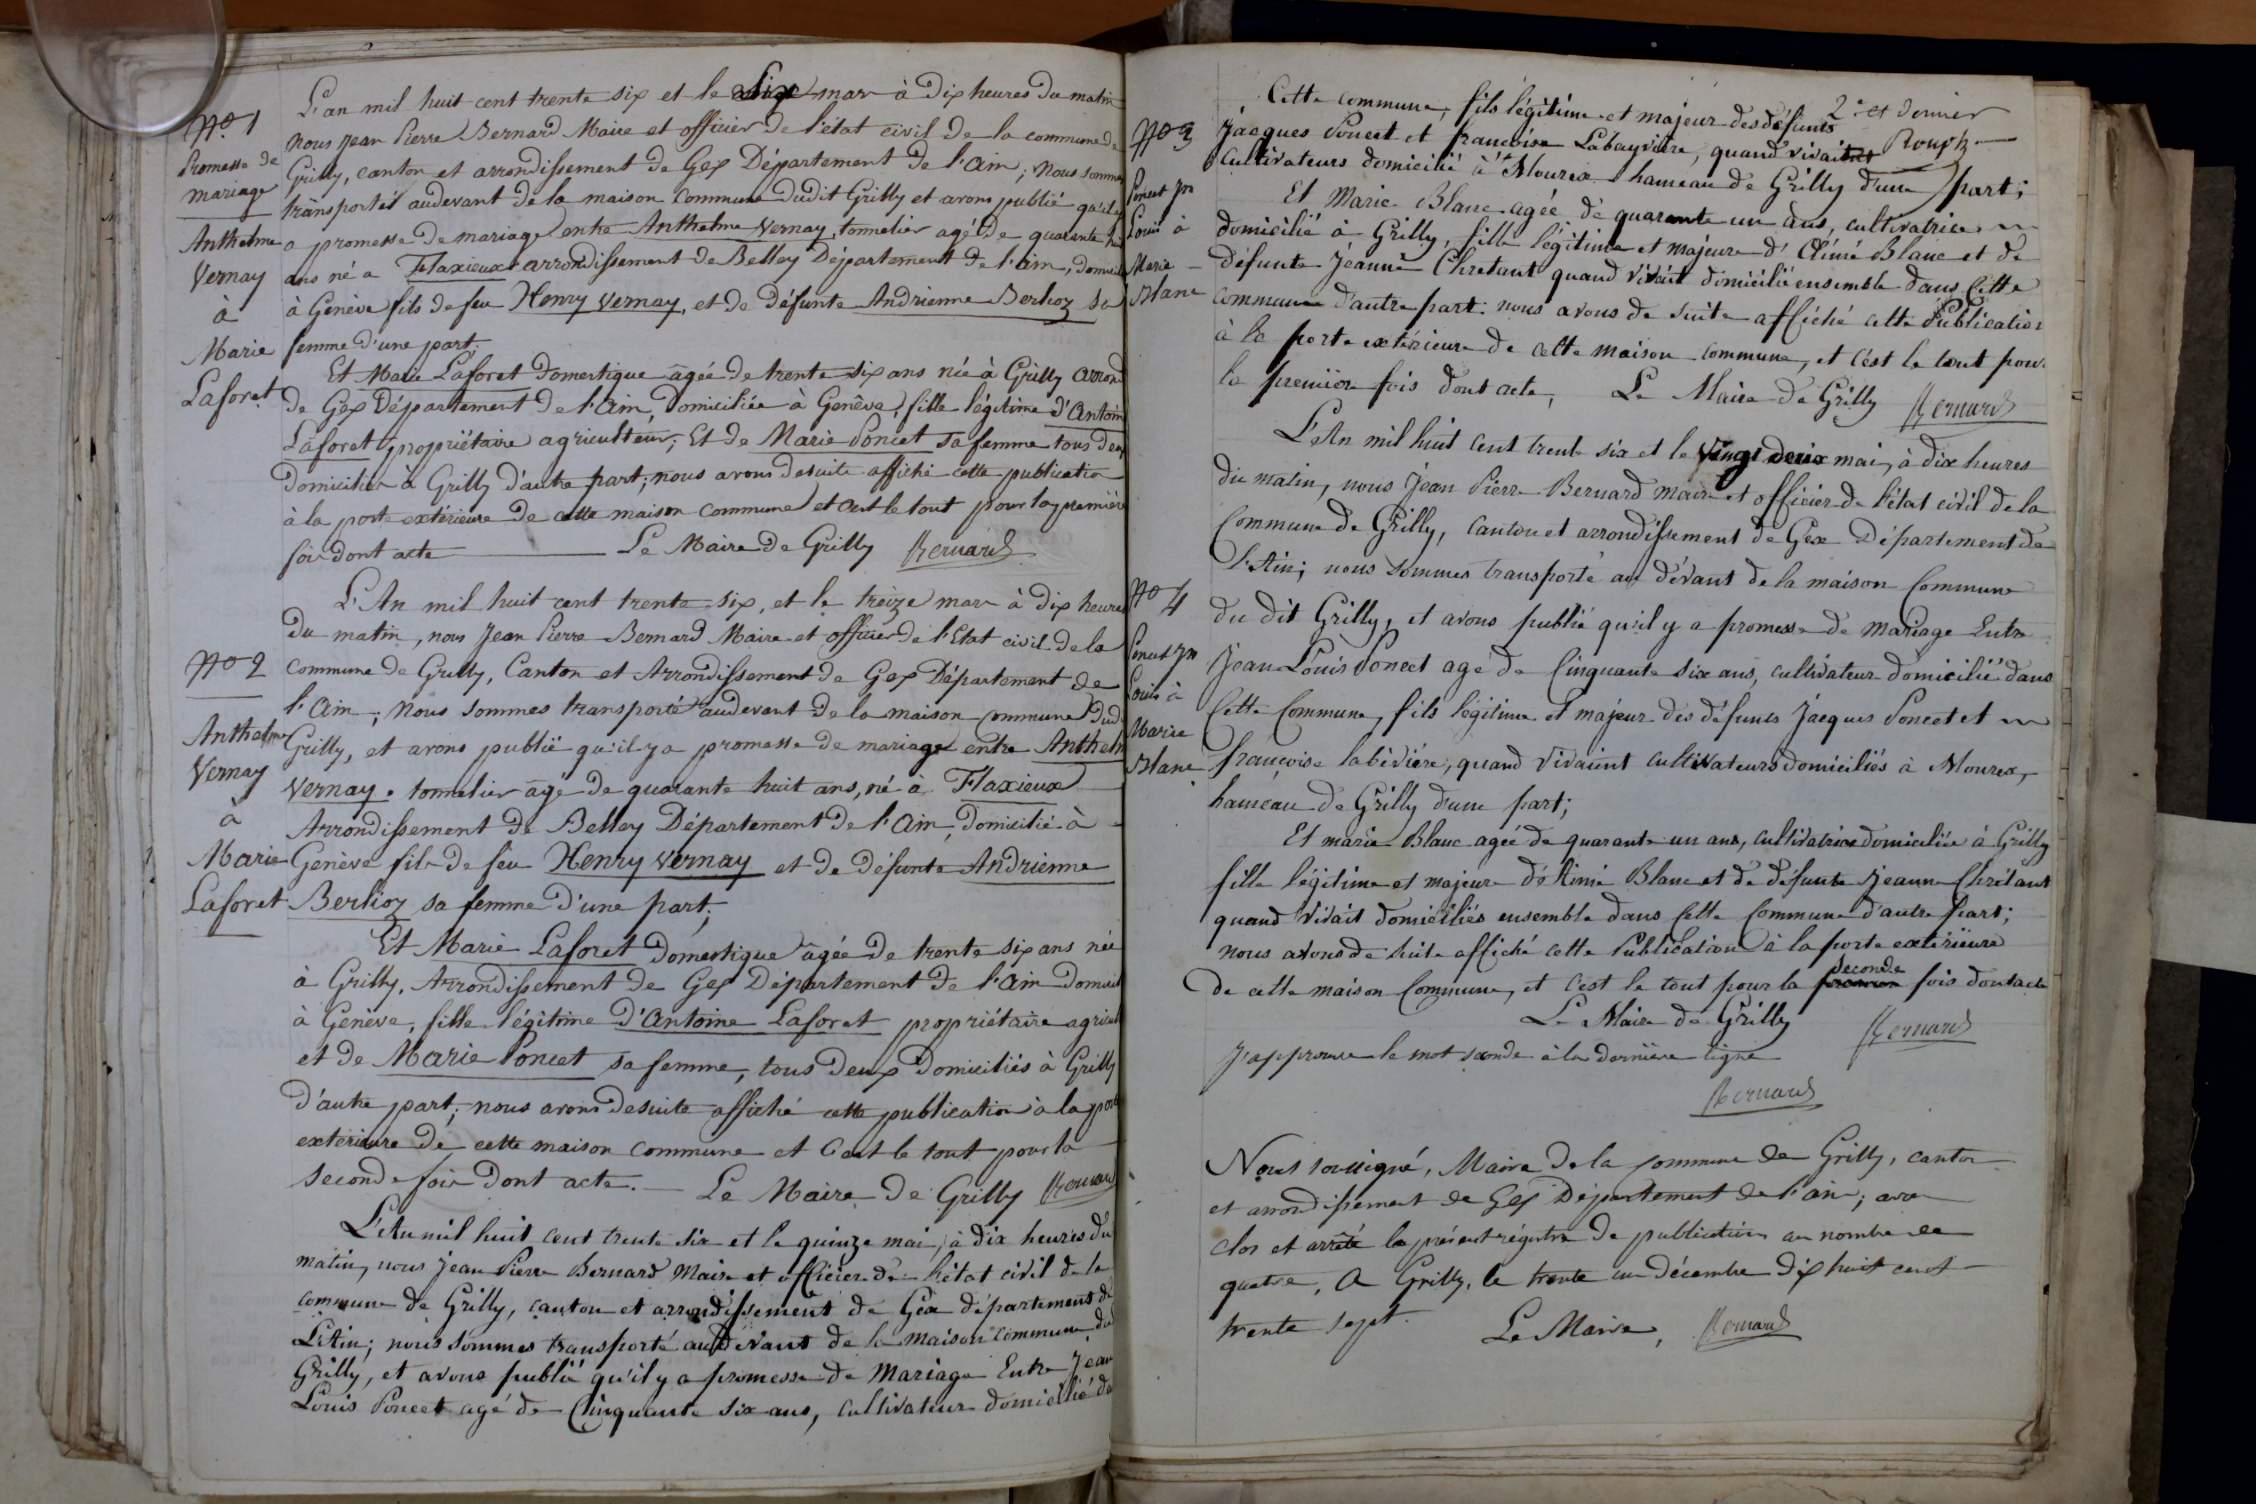 L'an mil huit cent trente six et le six mars à dix heures du matin
N° 1
nous jean Pierre Bernard Maire et officier de l'état civil de la commune de
Promesse de
Grilly, canton et arrondissement de Gex Département de l'ain; nous sommes
mariage
transportés audevant de la maison commune dudit Grilly et avons publié qu'il y
Anthelme
a promesse de mariage entre Anthelme Vernay, tonnelier agé de quarante hui
Vernay
ans né a Flaxieux arrondissement de Belley Département de l'ain, domicil
à
à Genève fils de feu Henry Vernay, et de défunte Andrienne Berlioz sa
Marie
femme d'une part.
Laforet
Et Marie Laforet domestique âgée de trente six ans née à Grilly arrond
de Gex Département de l'ain, domiciliée à Genève, fille légitime d'Antoin
Laforet propriétaire agriculteur; Et de Marie Poncet sa femme tous deux
domiciliés à Grilly d'autre part; nous avons desuite affiché cette publication
à la porte extérieure de cette maison commune et c'est le tout pour la première
fois dont acte Le Maire de Grilly Bernard
L'An mil huit cent trente six, et le treize mars à dix heures
du matin, nous Jean Pierre Bernard Maire et officier de l'Etat civil de la
N° 2
commune de Grilly, Canton et Arrondissement de Gex Département de
l'ain; Nous sommes transporté audevant de la maison commune dud
Anthelme
Grilly, et avons publié qu'il y a promesse de mariage entre Anthelm
Vernay
Vernay. tonnelier âgé de quarante huit ans, né à Flaxieux
à
Arrondissement de Belley Département de l'ain, domicilié à
Marie
Genève fils de feu Henry Vernay et de défunte Andrienne
Laforet
Berlioz sa femme d'une part;
Et Marie Laforet domestique âgée de trente six ans née
à Grilly, Arrondissement de Gex Département de l'ain domicil
à Genève, fille légitime D'Antoine Laforet propriétaire agricul
et de Marie Poncet sa femme, tous deux domiciliés à Grilly
d'autre part; nous avons desuite affiché cette publication à la porte
extérieure de cette maison commune et c'est le tout pour la
seconde fois dont acte. Le Maire de Grilly Bernard
L'An mil huit cent trente six et le quinze mai, à dix heures du
matin, nous jean Pierre Bernard Maire et officier de l'état civil de la
commune de Grilly, canton et arrondissement de Gex département de
L'Ain; nous sommes transporté au devant de la maison commune du
Grilly, et avons publié qu'il y a promesse de Mariage Entre Jean
Louis Poncet agé de Cinquante six ans, cultivateur domicilié da
2e et dernier
Cette commune, fils légitime et majeur des défunts
N° 3
Jacques Poncet et françoise Labayvière, quand vivaient
cultivateurs domicilié à Mourex hameau de Grilly d'une part;
Poncet Jn
Et Marie Blanc agée de quarante un ans, cultivatrice
Louis à
domicilié à Grilly, fille légitime et majeure d'Aimé Blanc et de
Marie
défunte Jeanne Chretant quand vivait domicilié ensemble dans Cette
Blanc
commune d'autre part: nous avons de suite affiché cette Publication
à la porte extérieure de cette maison commune, et c'est le tout pour
la première fois dont acte, Le Maire de Grilly Bernard
L'An mil huit cent trente six et le vingt deux mai, à dix heures
du matin, nous Jean Pierre Bernard maire et officier de l'état civil de la
Commune de Grilly, canton et arrondissement de Gex Département de
l'Ain; nous sommes transporté au dévant de la maison Commune
N° 4
du dit Grilly, et avons publié qu'il y a promesse de Mariage Entre
Poncet Jn
Jean Louis Poncet agé de Cinquante six ans, cultivateur domicilié dans
Louis à
Cette Commune, fils légitime et majeur des défunts Jacques Poncet et
Marie
Blanc
françoise labévière, quand vivaient cultivateurs domiciliés à Mourex,
hameau de Grilly d'une part;
Et marie Blanc agée de quarante un ans, cultivatrice domiciliée à Grilly
fille légitime et majeure d'Aimé Blanc et de défunte Jeanne Chrétant
quand vivait domiciliés ensemble dans Cette Commune d'autre part;
nous avons de suite affiché cette Publication à la porte extérieure
de cette maison Commune, et c'est le tout pour la seconde fois dont acte
Le Maire de Grilly Bernard
J'approuve le mot seconde à la dernière ligne
Bernard
Nous soussigné, Maire de la commune de Grilly, canton
et arrondissement de Gex Département de l'ain; avons
clos et arrêté le présent régistre de publication au nombre de
quatre, A Grilly, le trente un décembre dix huit cent
trente sept. Le Maire, Bernard